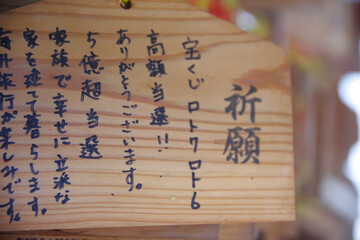 祈願
宝くじ ロト7 ロト6
高額当選!!
ありがとうございます。
5億超当選
家族で幸せに立派な
家を建てて暮らします。
毎月旅行が楽しみです。